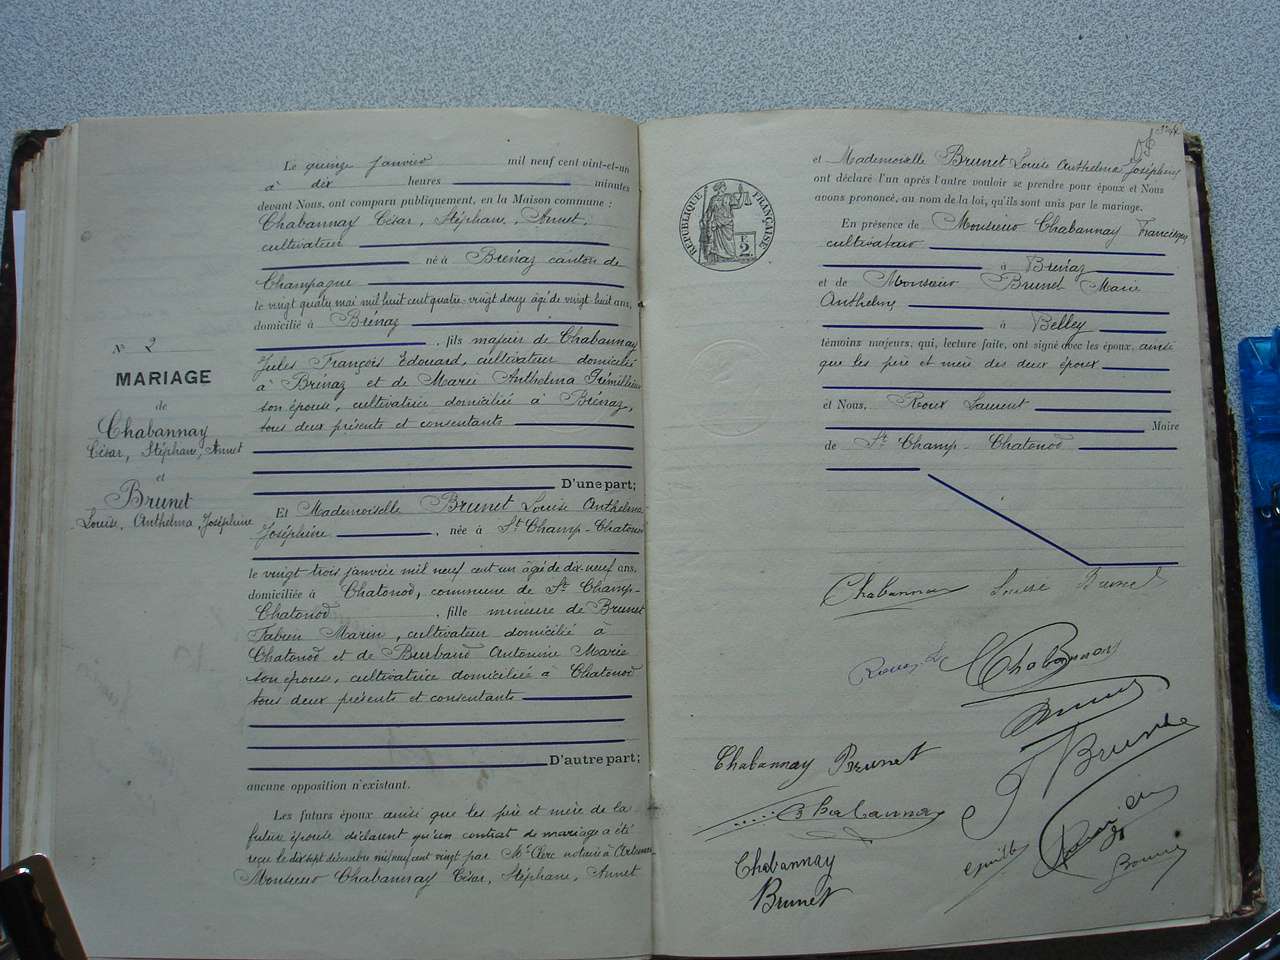 Le quinze Janvier mil neuf cent vint-et-un
à dix heures minutes
devant Nous, ont comparu publiquement, en la Maison commune :
Chabannay César, Stéphane, Annet,
cultivateur
né à Brénaz canton de
Champagne
le vingt quatre mai mil huit cent quatre-vingt douze âgé de vingt-huit ans,
domicilié à Brénaz
, fils majeur de Chabannay
Jules François Edouard, cultivateur domicilié
à Brénaz et de Marie Anthelma
son épouse, cultivatrice domiciliée à Brénaz,
tous deux présents et consentants
D'une part;
Et Mademoiselle Brunet Louise Anthelma
Joséphine , née à St Champ-Chatonod
le vingt trois janvier mil neuf cent un âgée de dix-neuf ans,
domiciliée à Chatonod, commune de St Champ-
Chatonod , fille mineure de Brunet
Fabien Marin, cultivateur domicilié à
Chatonod et de Burbaud Antonine Marie
son épouse, cultivatrice domiciliée à Chatonod
tous deux présents et consentants
D'autre part;
aucune opposition n'existant.
Les futurs époux ainsi que les père et mère de la
future épouse déclarent qu'un contrat de mariage a été
reçu le dix sept décembre mil neuf cent vingt par Me Clerc notaire à
Monsieur Chabannay César, Stéphane, Annet
N° 2
MARIAGE
de
Chabannay
César, Stéphane, Annet
et
Brunet
Louise, Anthelma, Joséphine
et Mademoiselle Brunet Louise Anthelma Joséphine
ont déclaré l'un après l'autre vouloir se prendre pour époux et Nous
avons prononcé, au nom de la loi, qu'ils sont unis par le mariage.
En présence de Monsieur Chabannay Francisque
cultivateur
à Brénaz
et de Monsieur Brunet Marie
Anthelme
à Belley
témoins majeurs, qui, lecture faite, ont signé avec les époux, ainsi
que les père et mère des deux époux
et Nous, Roux Laurent
Maire
de St Champ-Chatonod
RÉPUBLIQUE FRANÇAISE
2 F.
Chabannay Louise Brunet
Roux L Chabannay
Brunet
Chabannay Brunet
Chabannay
Chabannay
Brunet